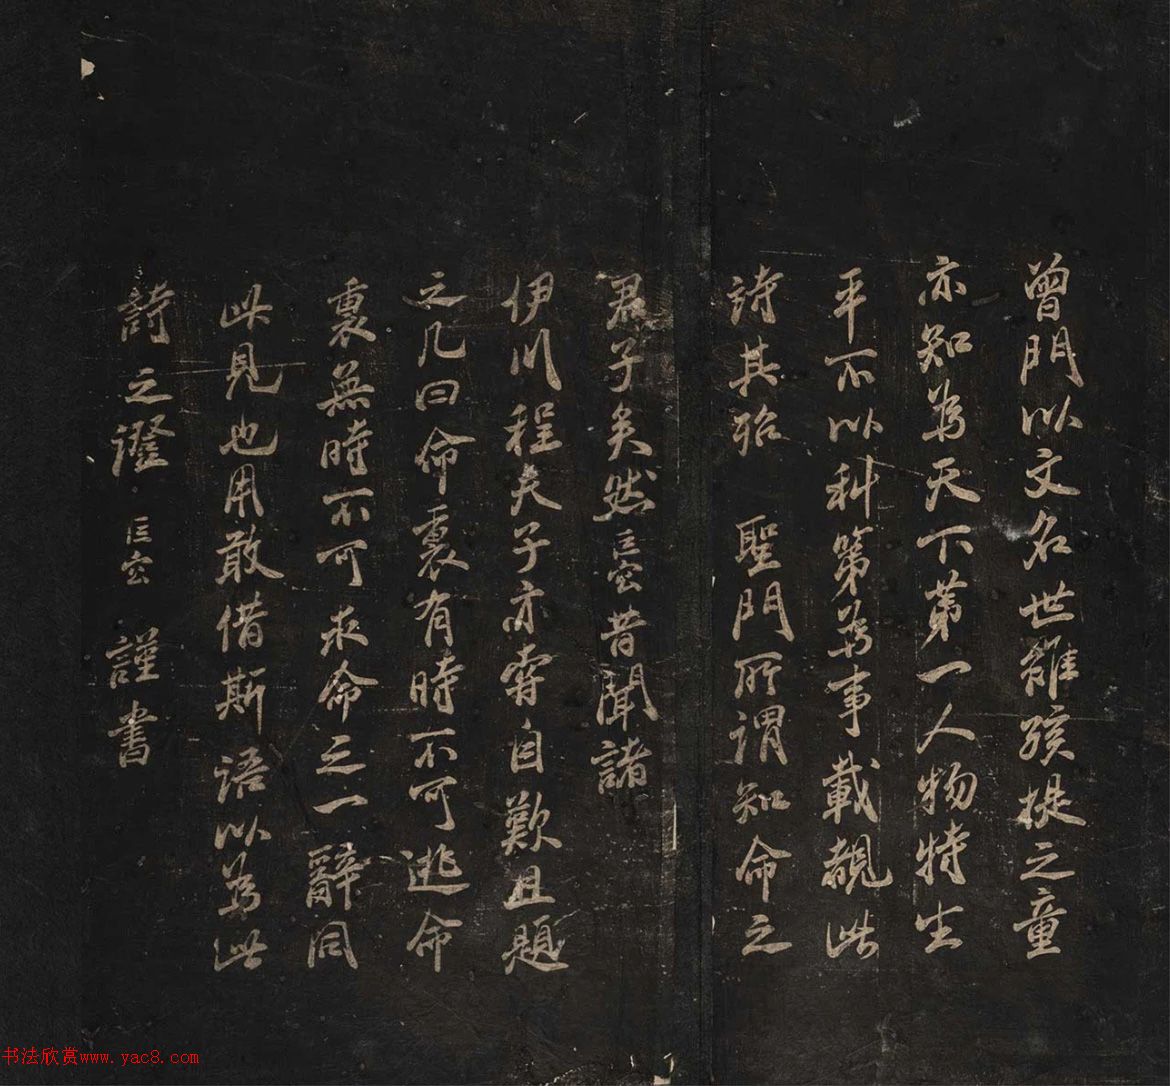 曾門以文名世雖孩提之童
亦知為天下第一人物特生
平不以科第為事載觀此
詩其殆 聖門所謂知命之
君子矣然 昔聞諸
伊川程夫子亦嘗自歎且題
之几曰命裏有時不可逃命
裏無時不可求命之一辭同
此見也用敢借斯語以為此
詩之證 謹書
书法欣赏www.yac8.com